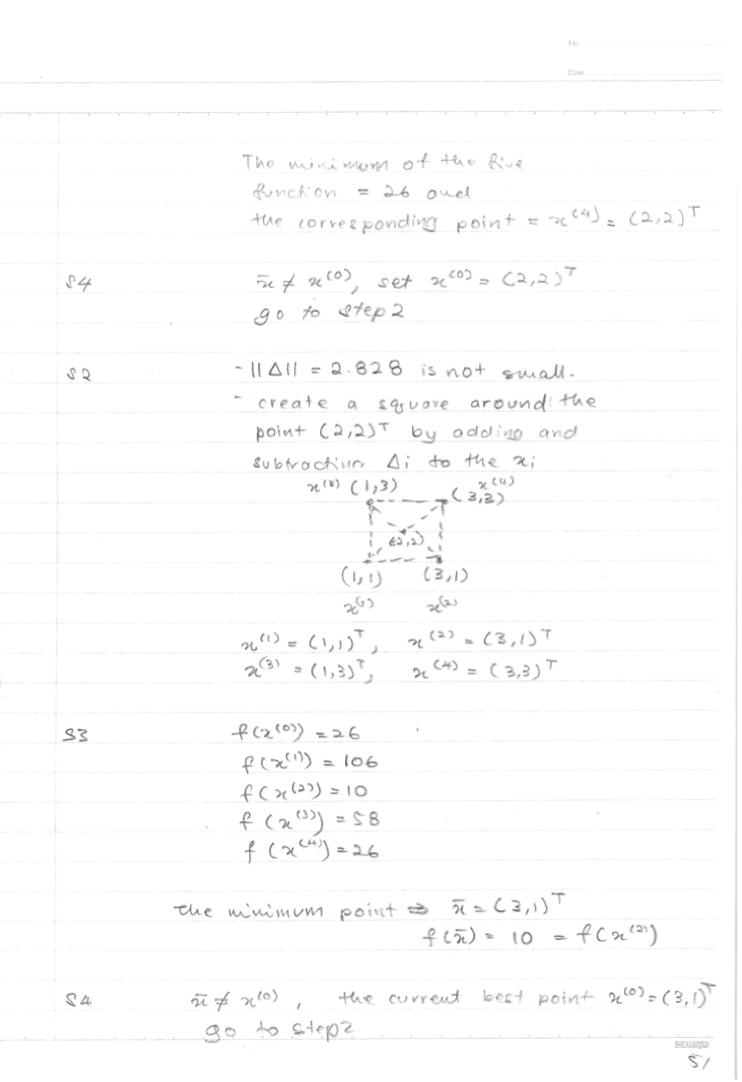 No.
Date
The minimum of the five
function = 26 and
the corresponding point = x^(4) = (2,2)^T
S4 x̄ ≠ x^(0), set x^(0) = (2,2)^T
go to step 2
S2 - ||Δ|| = 2.828 is not small.
- create a square around the
point (2,2)^T by adding and
subtraction Δi to the xi
x^(3) (1,3) x^(4)
(3,3)
(2,2)
(1,1) (3,1)
x^(1) x^(2)
x^(1) = (1,1)^T, x^(2) = (3,1)^T
x^(3) = (1,3)^T, x^(4) = (3,3)^T
S3 f(x^(0)) = 26
f(x^(1)) = 106
f(x^(2)) = 10
f(x^(3)) = 58
f(x^(4)) = 26
the minimum point ⇒ x̄ = (3,1)^T
f(x̄) = 10 = f(x^(2))
S4 x̄ ≠ x^(0), the current best point x^(0) = (3,1)^T
go to step 2
51